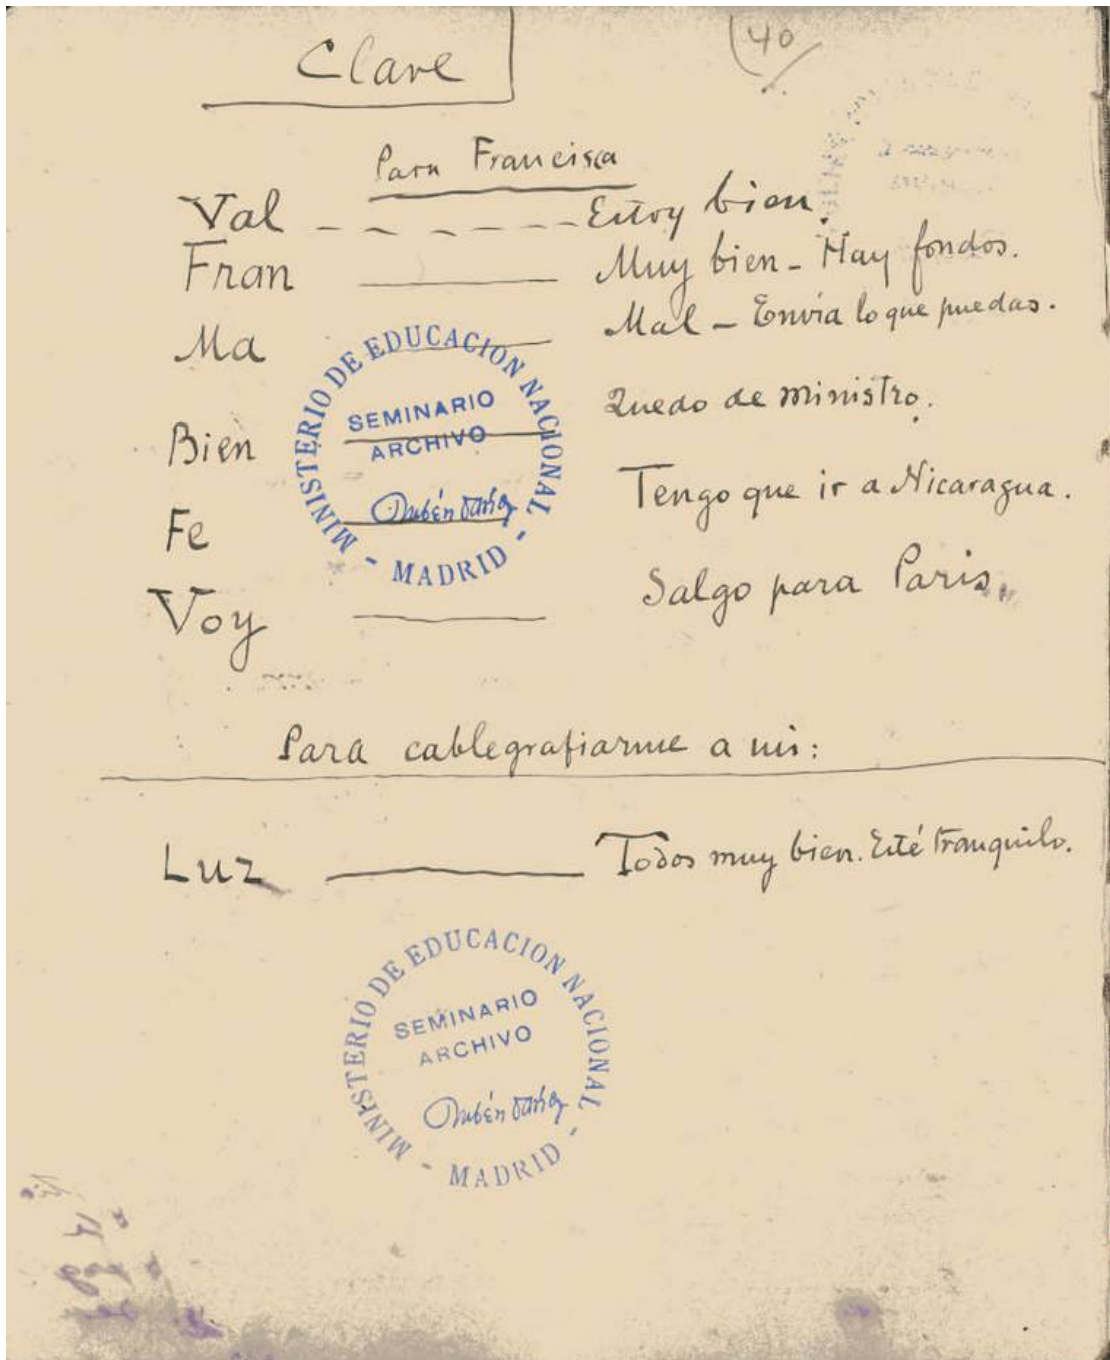 Clave
40
Para Francisca
Val - - - - - Estoy bien.
Fran —— Muy bien - Hay fondos.
Ma —— Mal - Envía lo que puedas.
Bien —— Quedo de ministro.
Fe —— Tengo que ir a Nicaragua.
Voy —— Salgo para Paris.
MINISTERIO DE EDUCACION NACIONAL - MADRID -
SEMINARIO
ARCHIVO
Rubén Darío
Para cablegrafiarme a mi:
Luz —— Todos muy bien. Esté tranquilo.
MINISTERIO DE EDUCACION NACIONAL - MADRID -
SEMINARIO
ARCHIVO
Rubén Darío